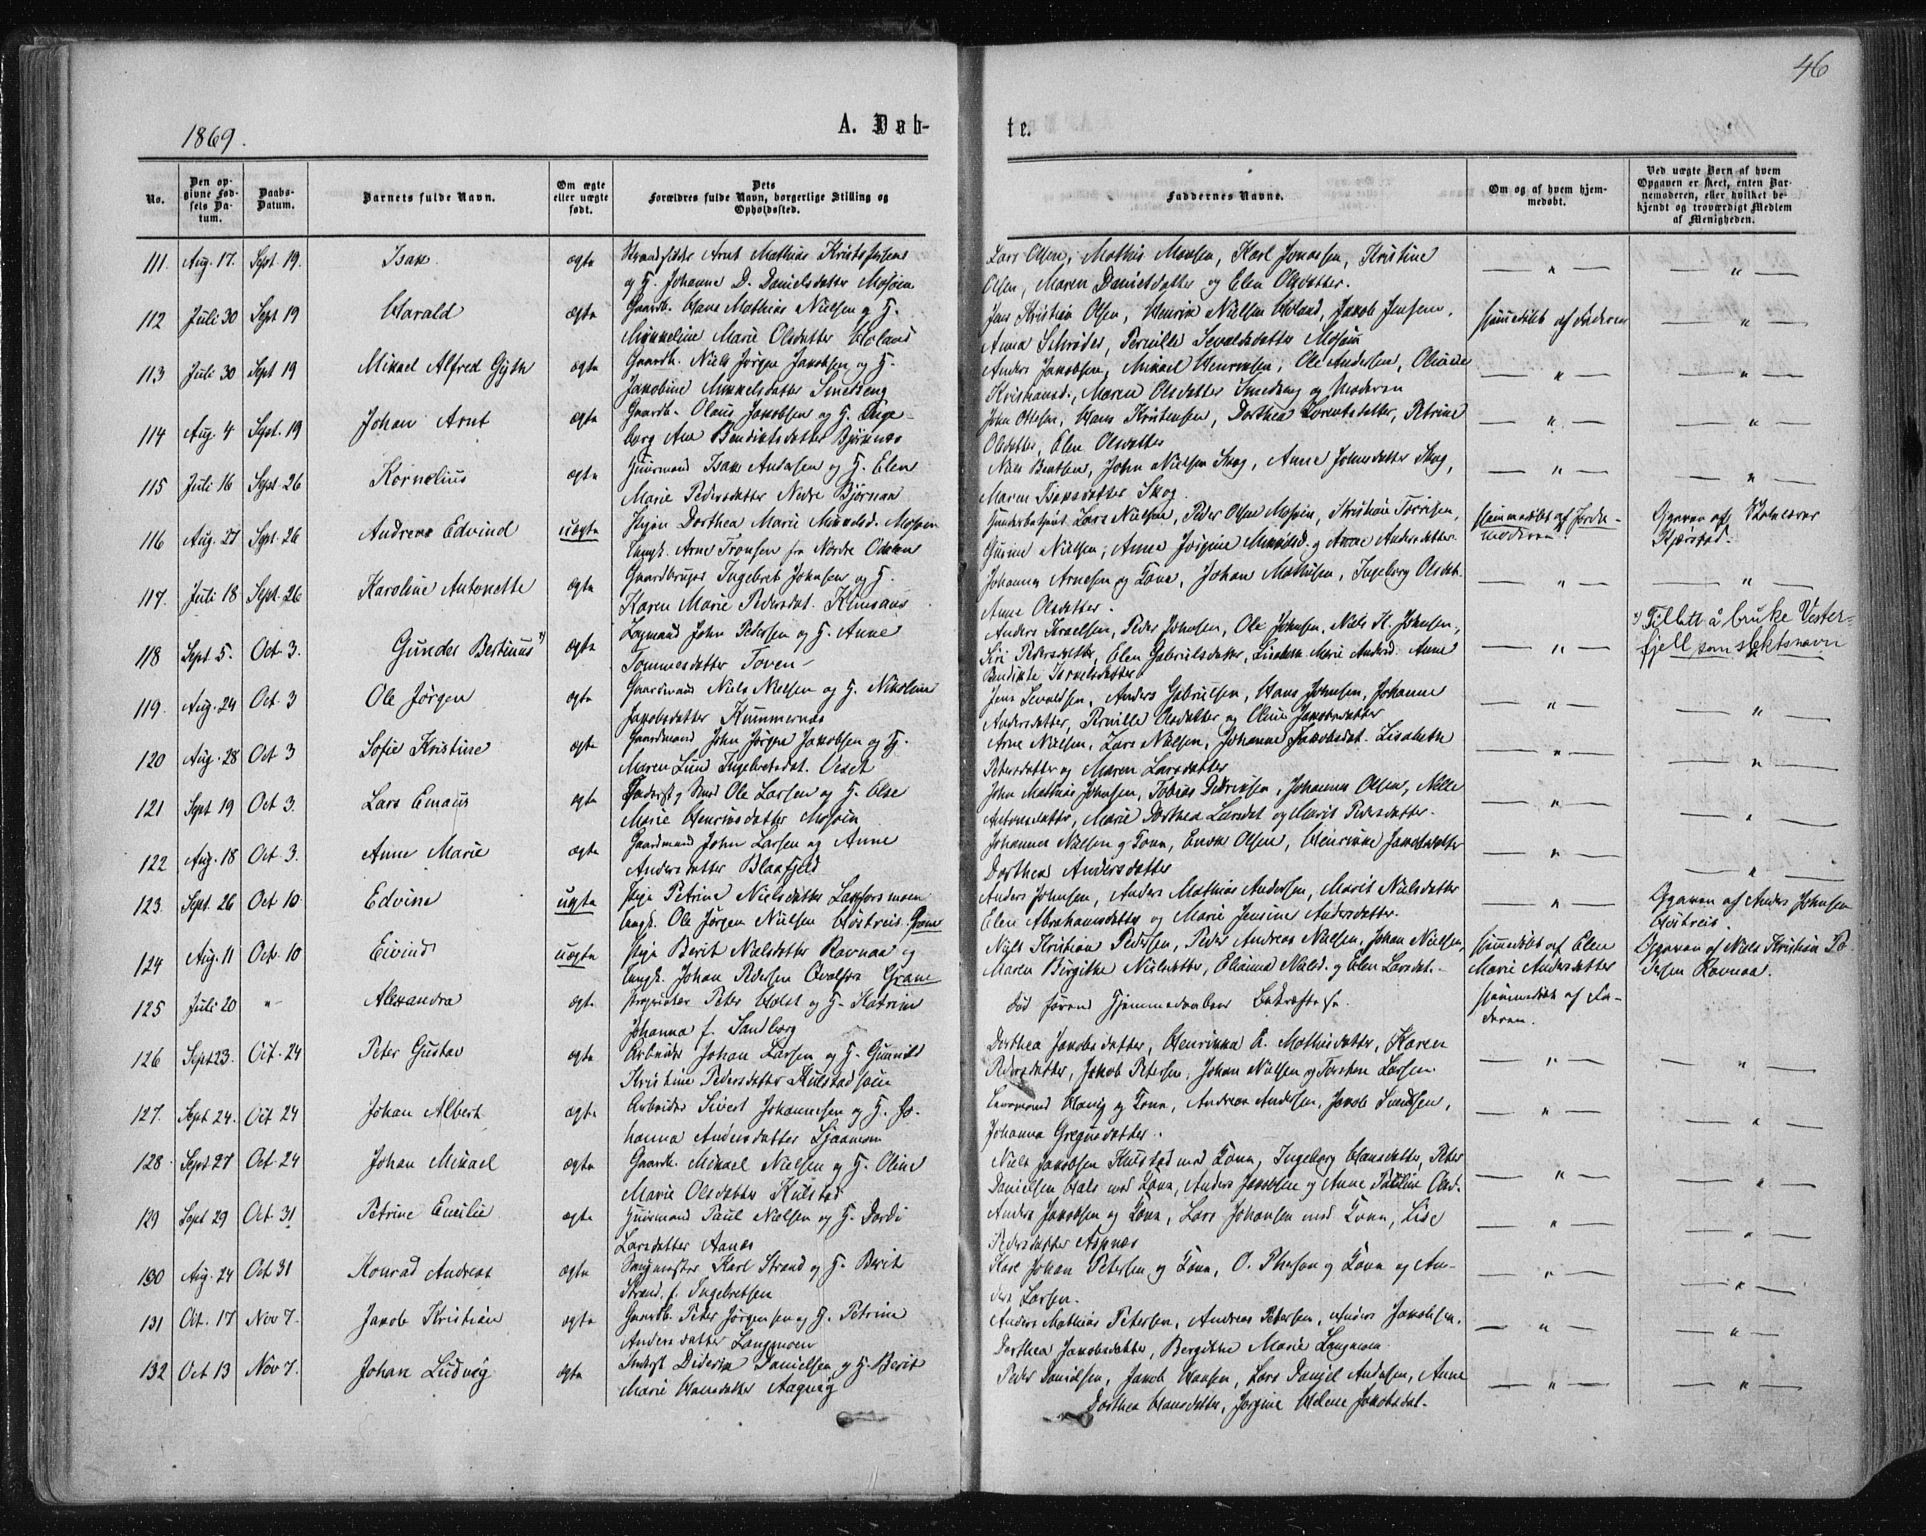 46
1869.
A. Døb-
te.
No.
Den op-
givne Fød-
sels Da-
tum.
Daabs-
Datum.
Barnets fulde Navn.
Om ægte
eller uægte
født.
Dets
Forældres fulde Navn, borgerlige Stilling og
Opholdssted.
Faddernes Navne.
Om og af hvem hjem-
medøbt.
Ved uægte Børn af hvem
Opgaven er skeet, enten Bar-
nemoderen, eller hvilket be-
kjendt og troværdigt Medlem
af Menigheden.
111. Aug. 17. Sept. 19. Isak. ægte Strandsidder Arnt Mathias Kristofersen
og H. Johanne D. Danielsdatter Mosøen
Lars Olsen, Mathis Monsen, Karl Jonassen, Kristine
Olsen, Maren Danielsdatter og Elen Olsdatter.
112 Juli 30 Sept 19 Harald ægte Gaardb. Hans Mathias Nielsen og H.
Mikkeline Marie Olsdatter Holand
Jens Kristian Olsen, Henrik Nielsen Holand, Jakob Jensen,
Anna Schrøder, Pernille Sevaldsdatter Mosøen
hjemmedøbt af Faderen
113 Juli 30 Sept 19 Mikael Alfred Gjth ægte Gaardb. Niels Jørgen Jakobsen og H.
Jakobine Mikkelsdatter Smedseng
Anders Jakobsen, Mikael Henriksen, Ole Andersen, Oline
Kristiansd., Maren Olsdatter Smedseng og Moderen
114 Aug. 4 Sept. 19 Johan Arnt ægte Gaardb. Olaus Jakobsen og H. Inge-
borg Ane Bendiktsdatter Bjørnnes
John Ottesen, Hans Kristensen, Dorthea Lorentsdatter, Petrine
Olsdatter, Elen Olsdatter
115 Juli 16 Sept. 26 Kornelius ægte Huusmand Isak Andersen og H. Elen
Marie Pedersdatter Nedre Bjørnaa
Niels Bentsen, John Nielsen Skog, Anne Johnsdatter Skog,
Maren Isaksdatter Skog.
116 Aug. 21 Sept. 26 Andreas Edvind uægte Pigen Dorthea Marie Mikkelsd. Mosøen
Ungk. Arne Tronsen fra Nordre Odalen
Lars Nielsen, Peder Olsen Mosøen, Kristian Torrisen,
Gurine Nielsen, Anne Jørgine Mikkelsd. og Anne Andersdatter.
hjemmedøbt af Jorde-
moderen
Opgaven af
Kjærstad.
117 Juli 18 Sept. 26 Karoline Antonette ægte Gaardbruger Ingebret Johnsen og H.
Karen Marie Pedersdat. Klinsaas
Johannes Arnesen og Kona, Johan Mathisen, Ingeborg Olsdat.
Anne Olsdatter.
118 Sept 5. Oct. 3. Gunder Bertinus ¹⁾ ægte Laymand John Pedersen og H. Anne
Tommesdatter Toven
Anders Israelsen, Peder Johnsen, Ole Johnsen, Niels H. Johnsen,
Siri Pedersdatter, Elen Gabrielsdatter, Lisabeth Marie Andersd. Anne
Bendikte Israelsdatter
¹⁾ Tillatt å bruke Vester-
fjell som slektsnavn
119. Aug. 24 Oct. 3 Ole Jørgen ægte Gaardmand Niels Nielsen og H. Nikoline
Jakobsdatter Kummernes
Jens Sevaldsen, Anders Gabrielsen, Hans Johnsen, Johanne
Andersdatter, Pernille Olsdatter og Oline Jakobsdatter
120 Aug. 28 Oct 3 Sofie Kristine ægte Gaardmand John Jørgen Jakobsen og H.
Maren Lund Ingebretsdat. Veset
Arne Nielsen, Lars Nielsen, Johanne Jakobsdat. Lisabeth
Petersdatter og Maren Larsdatter
121 Sept 19 Oct 3. Lars Emaus ægte Inderst og Smed Ole Larsen og H. Else
Marie Henriksdatter Mosøen
John Mathias Johnsen, Tobias Didriksen, Johannes Olsen, Nille
Antonsdatter, Marie Dorthea Larsdat. og Marit Pedersdatter.
122 Aug. 18 Oct. 3. Anne Marie ægte Gaardmand John Larsen og Anne
Andersdatter Blaafjeld
Johannes Nielsen og Kona, Enok Olsen, Henrikke Jakobsdatter
Dorthea Andersdatter
123. Sept. 26 Oct 10. Edvine uægte Pige Petrine Nielsdatter Laxforsmoen
Ungk. Ole Jørgen Nielsen Høstreis. Grane
Anders Johnsen, Anders Mathias Andersen, Marit Nielsdatter
Elen Abrahamsdatter og Marie Jensine Andersdatter.
Opgaven af Anders Johnsen
Høstreis.
124 Aug. 11 Oct. 10 Eivind uægte Pige Berit Nielsdatter Ravnaa og
Ungk. Johan Pedersen Grane
Niels Kristian Pedersen, Peder Andreas Nielsen, Johan Nielsen,
Maren Birgitte Nielsdatter, Elianna Nielsd. og Elen Larsdat.
hjemmedøbt af Elen
Marie Andersdatter
Opgaven af Niels Kristian Pe-
dersen Ravnaa.
125 Juli 20 " Alexandra ægte Proprietær Peter Holst og H. Katrine
Johanna f. Sandborg
død førend Hjemmedaabens Bekræftelse.
hjemmedøbt af Fa-
deren.
126 Sept 23. Oct. 24 Peter Gustav ægte Arbeider Johan Larsen og H. Gunnild
Kristine Pedersdatter Kulstadsøen
Dorthea Jakobsdatter, Henrikka A. Mathisdatter, Karen
Pedersdatter, Jakob Petersen, Johan Nielsen og Torsten Larsen
127. Sept 24. Oct 24 Johan Albert ægte Arbeider Sivert Johannesen og H. Jo-
hanna Andersdatter Sjaamoen
Havig og Kona, Andreas Andersen, Jakob Svendsen,
Johanna Gregusdatter.
128 Sept 27 Oct. 24 Johan Mikael ægte Gaardb. Mikael Nielsen og H. Oline
Marie Olsdatter Kulstad
Niels Jakobsen Kulstad med Kona, Ingeborg Hansdatter, Peter
Danielsen Hals med Kona, Anders Jakobsen og Anne Pauline Olsd.
129 Sept 29 Oct. 31 Petrine Emilie ægte Huusmand Paul Nielsen og H. Dordi
Larsdatter Aanes
Anders Jakobsen og Kona, Lars Johansen med Kona, Lise
Pedersdatter Aspnes
130 Aug. 24 Oct 31 Konrad Andreas ægte Sagmester Karl Strand og H. Berit
Strand, f. Ingebretsen
Karl Johan Petersen og Kona, O. Pherson og Kona og An-
ders Larsen.
131 Oct. 17 Nov 7. Jakob Kristian ægte Gaardb. Peter Jørgensen og H. Petrine
Andersdatter Langmoen
Anders Mathias Petersen, Andreas Petersen, Anders Jakobsen,
Dorthea Jakobsdatter, Bergitte Marie Langmoen.
132 Oct 13 Nov 7. Johan Ludvig ægte Inderst Diderik Danielsen og H. Berit
Marie Hansdatter Aagvig
Peder Danielsen, Jakob Hansen, Lars Daniel Andersen, Anne
Dorthea Hansdatter, Jørgine Helene Jakobsdat.